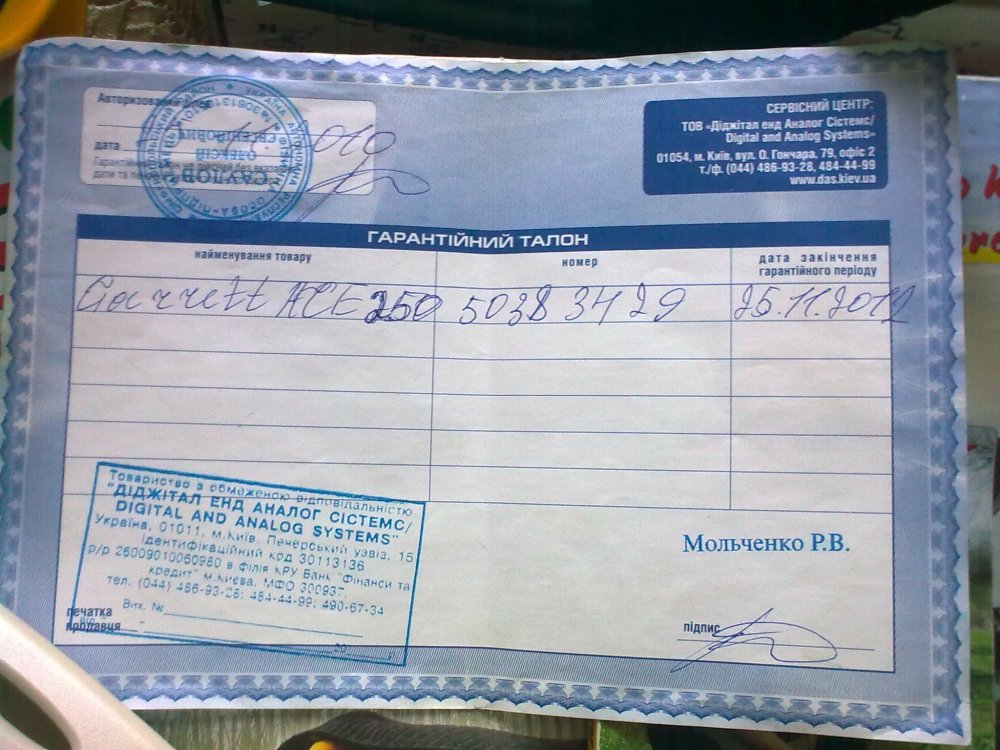 Авторизований
СЕРВІСНИЙ ЦЕНТР:
ТОВ «Діджітал енд Аналог Сістемс/
Digital and Analog Systems»
01054, м. Київ, вул. О. Гончара, 79, офіс 2
т./ф. (044) 486-93-28, 484-44-99
www.das.kiev.ua
дата
ГАРАНТІЙНИЙ ТАЛОН
найменування товару
номер
дата закінчення
гарантійного періоду
Garrett ACE 250 50383429 25.11.2012
Товариство з обмеженою відповідальністю
"ДІДЖІТАЛ ЕНД АНАЛОГ СІСТЕМС/
DIGITAL AND ANALOG SYSTEMS"
Україна, 01011, м.Київ, Печерський узвіз, 15
ідентифікаційний код 30113136
р/р 26009010060980 в філія КРУ Банк "Фінанси та
кредит" м.Києва, МФО 300937,
тел. (044) 486-93-28; 484-44-99; 490-67-34
Вих. №
печатка
продавця
Мольченко Р.В.
підпис